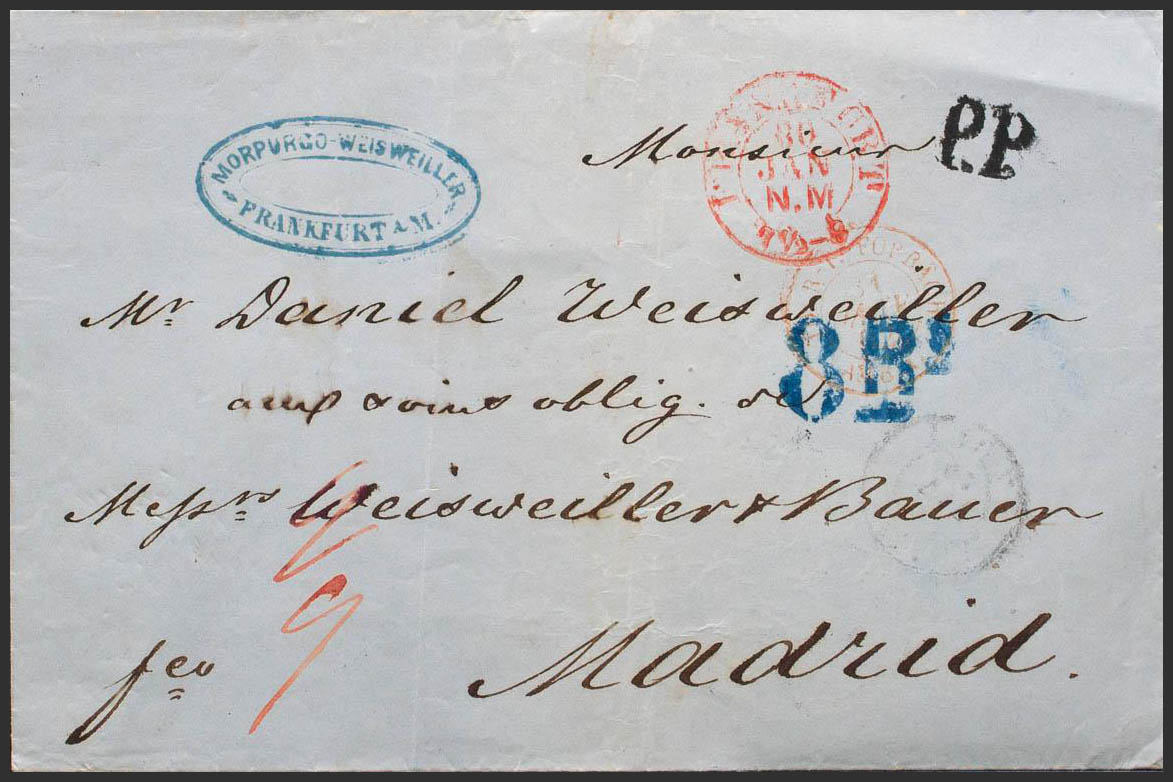 MORPURGO-WEISWEILLER
FRANKFURT A M.
Monsieur
30
JAN
N.M
P.P
Mr. Daniel Weisweiller
aux soins oblig. de
8 Rs
Messrs Weisweiller & Bauer
fco
9
Madrid.